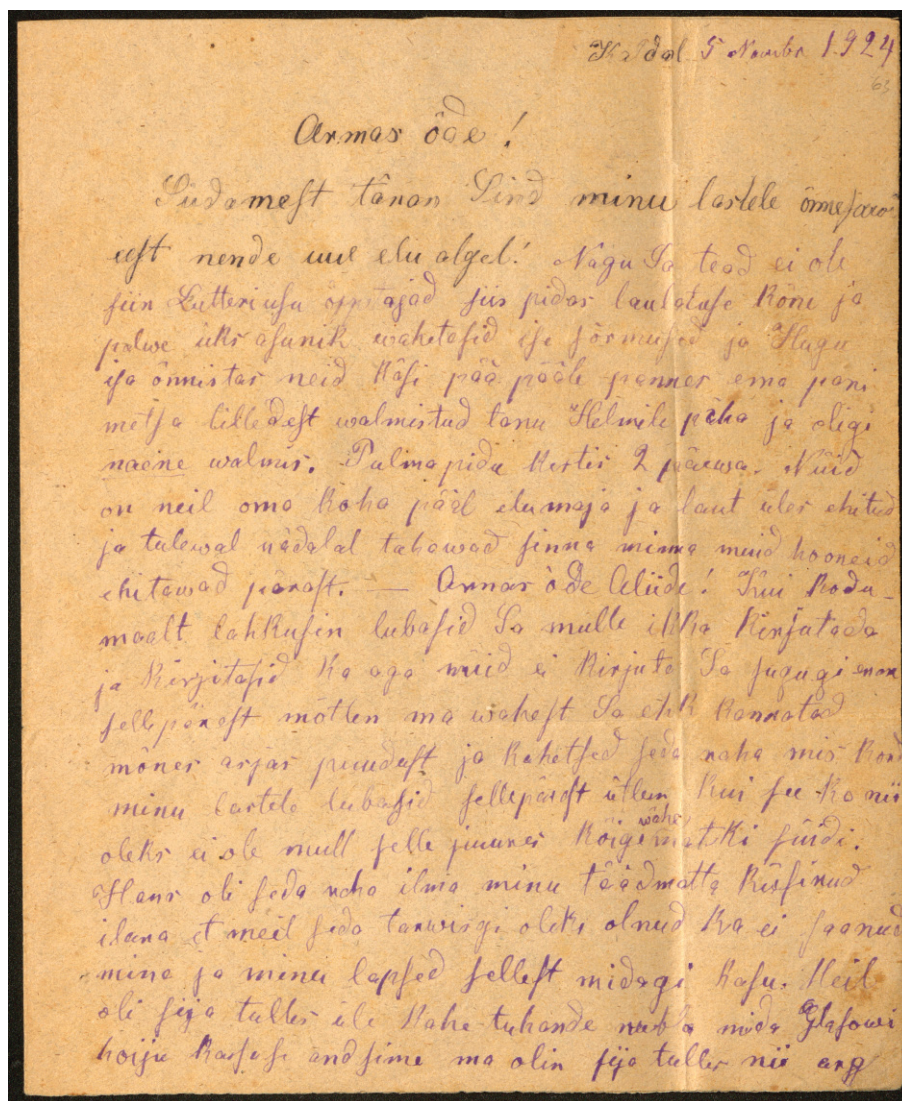 5 Novembr 1924
63
Armas õde!
Südamest tänan Sind minu lastele õnnesoow
eest nende uue elu algel! Nägu Sa tead ei ole
siin Lutteriusu õppetajad siis pidas laulatuse kõne ja
palwe üks asunik wahetasid ise sõrmused ja Hugu
isa õnnistas neid käsi pää pääle pannes ema pani
metsa lilledest walmistud tanu Helmile päha ja oligi
naene walmis. Pulma pidu kestis 2 päewa. Nüid
on neil oma koha pääl elumaja ja laut üles ehitud
ja tulewal nädalal tahawad sinna minna muid hooneid
ehitawad pärast. — Armas õde Aliide! Kui kodu-
maalt lahkusin lubasid Sa mulle ikka kirjutada
ja kirjitasid ka aga nüid ei kirjuta Sa sugugi enam
sellepärast mõtlen ma wahest Sa ehk kannatad
mõnes asjas puudust ja kahetsed seda raha mis kord
minu lastele lubasid sellepärast ütlen kui see ka nii
oleks ei ole mull selle juures kõige wähematki süidi.
Hans oli seda raha ilma minu täädmatta küssinud
ilma et meil seda tarwisgi oleks olnud ka ei saanud
mina ja minu lapsed sellest midagi kasu. Meil
oli siia tulles üle kahe tuhande rubla mida Glasowi
hoiju kassase andsime ma olin siia tulles nii arg